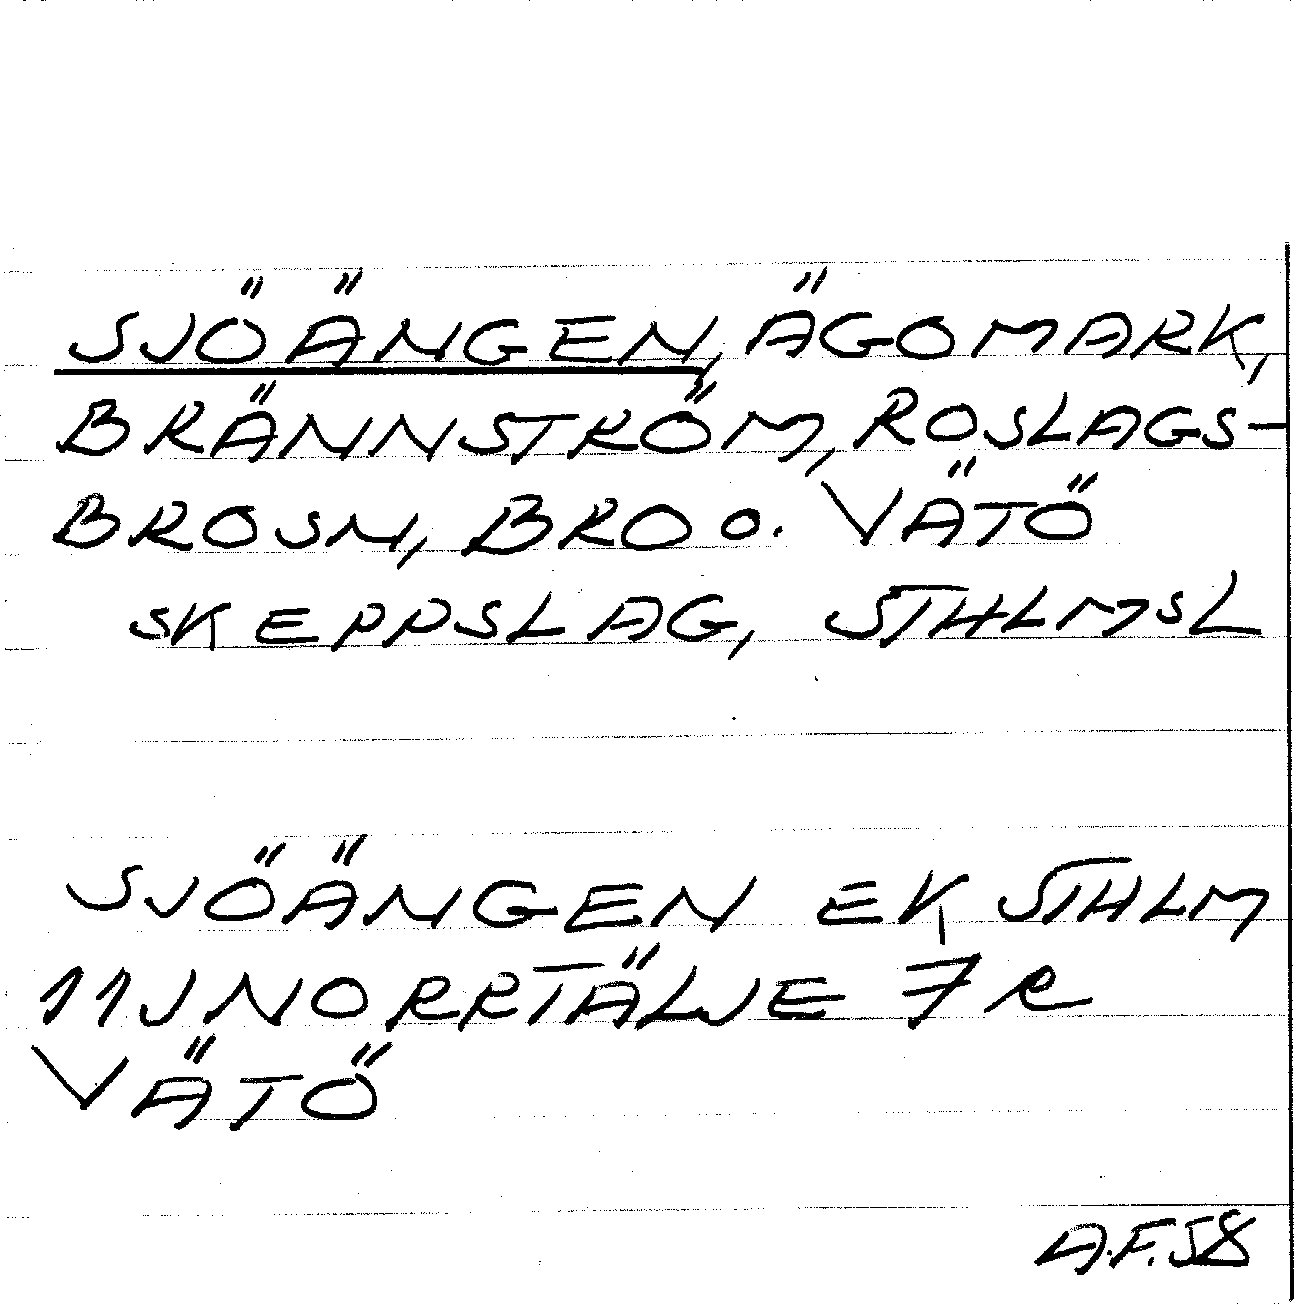 SJÖÄNGEN, ÄGOMARK,
BRÄNNSTRÖM, ROSLAGS-
BROSN, BRO O. VÄTÖ
SKEPPSLAG, STHLMSL
SJÖÄNGEN EK STHLM
11J NORRTÄLJE 7 R
VÄTÖ
A.F. 58